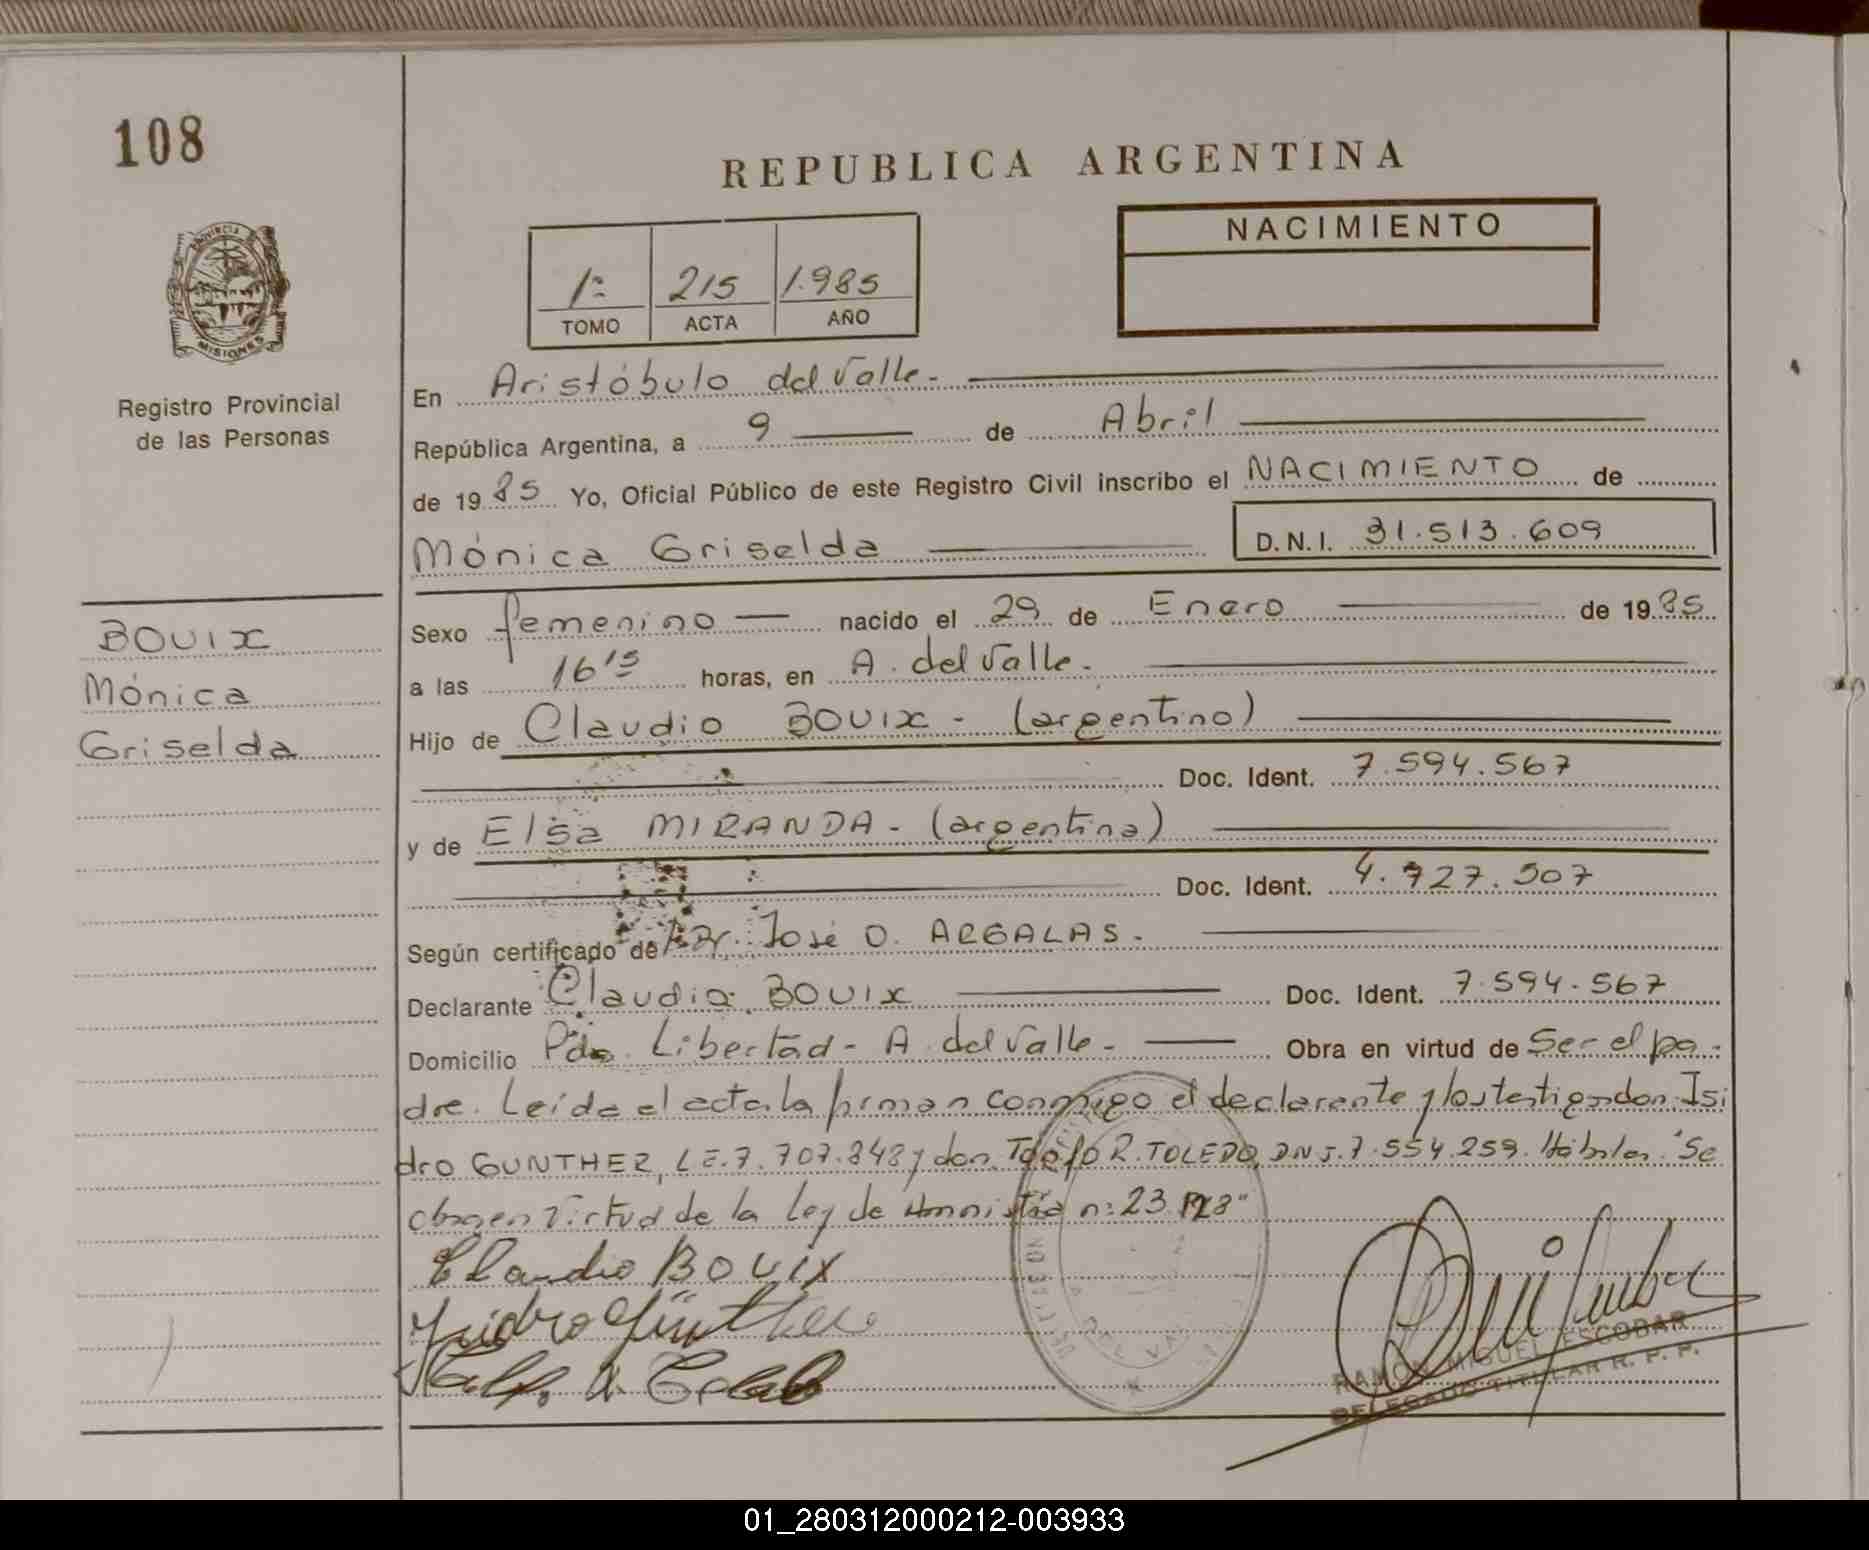 108
REPUBLICA ARGENTINA
PROVINCIA DE
MISIONES
Registro Provincial
de las Personas
1º 215 1.985
TOMO ACTA AÑO
NACIMIENTO
En Aristóbulo del Valle.-
República Argentina, a 9 de Abril
de 1985 Yo, Oficial Público de este Registro Civil inscribo el NACIMIENTO de
Mónica Griselda D.N.I. 31.513.609
BOUIX
Mónica
Griselda
Sexo femenino nacido el 29 de Enero de 1985
a las 16'15 horas, en A. del Valle.
Hijo de Claudio BOUIX - (argentino)
Doc. Ident. 7.594.567
y de Elsa MIRANDA - (argentina)
Doc. Ident. 4.727.507
Según certificado de Dr. José O. ARGALAS.
Declarante Claudio BOUIX Doc. Ident. 7.594.567
Domicilio Pdo. Libertad - A. del Valle - Obra en virtud de Ser el pa-
dre. Leída el acta la firman conmigo el declarante y los testigos don Isi
dro GUNTHER, L.E. 7.707.848 y don R. TOLEDO, DNI. 7.554.259. Hábiles. "Se
obra en virtud de la Ley de Amnistía nº 23.128"
Claudio BOUIX
Isidro Günther
RAMON MIGUEL ESCOBAR
DELEGADO TITULAR R. P. P.
01_280312000212-003933